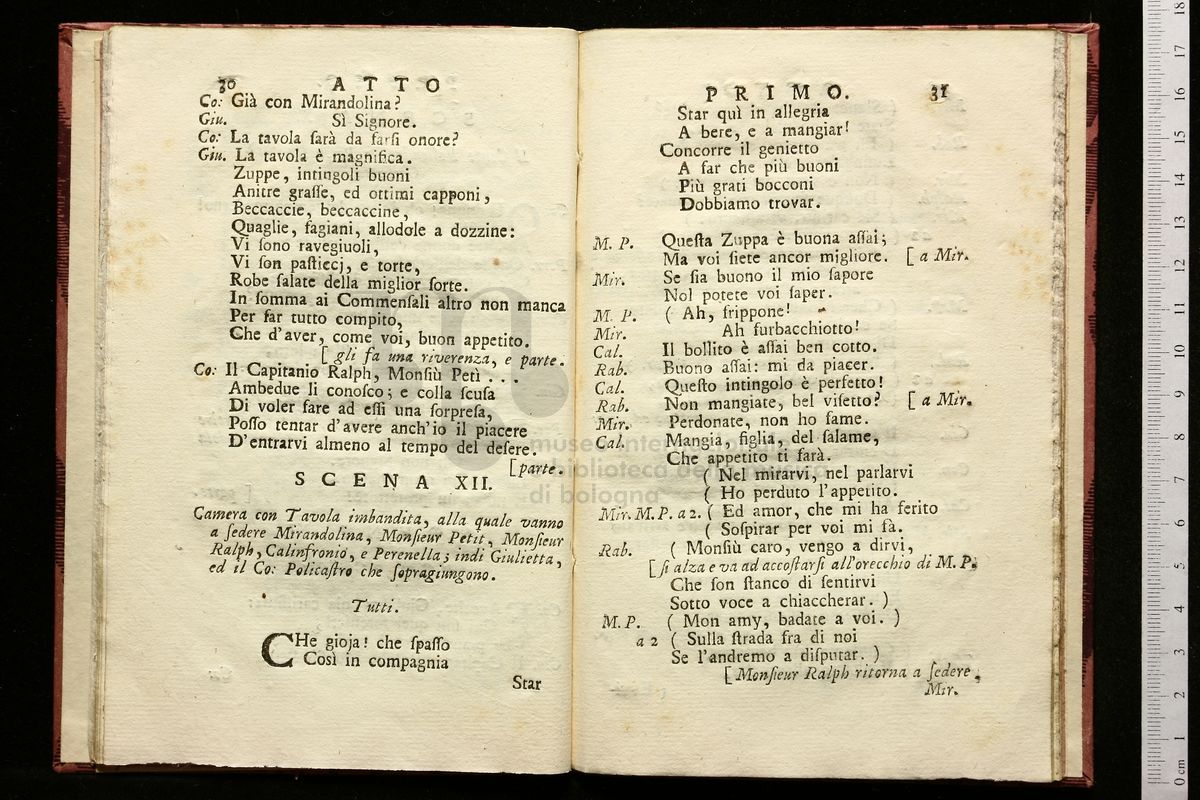 30 ATTO
Co: Già con Mirandolina?
Giu. Sì Signore.
Co: La tavola ſarà da farſi onore?
Giu. La tavola è magnifica.
Zuppe, intingoli buoni
Anitre graſſe, ed ottimi capponi,
Beccaccie, beccaccine,
Quaglie, fagiani, allodole a dozzine:
Vi ſono ravegiuoli,
Vi ſon paſticcj, e torte,
Robe ſalate della miglior ſorte.
In ſomma ai Commenſali altro non manca
Per far tutto compito,
Che d'aver, come voi, buon appetito.
[ gli fa una riverenza, e parte.
Co: Il Capitanio Ralph, Monſiù Petì . . .
Ambedue li conoſco; e colla ſcuſa
Di voler fare ad eſſi una ſorpreſa,
Poſſo tentar d'avere anch'io il piacere
D'entrarvi almeno al tempo del deſere.
[parte.
SCENA XII.
Camera con Tavola imbandita, alla quale vanno
a ſedere Mirandolina, Monſieur Petit, Monſieur
Ralph, Calinfronio, e Perenella; indi Giulietta,
ed il Co: Policaſtro che ſopragiungono.
Tutti.
CHe gioja! che ſpaſſo
Così in compagnia
Star
PRIMO. 31
Star quì in allegria
A bere, e a mangiar!
Concorre il genietto
A far che più buoni
Più grati bocconi
Dobbiamo trovar.
M. P. Queſta Zuppa è buona aſſai;
Ma voi ſiete ancor migliore. [ a Mir.
Mir. Se ſia buono il mio ſapore
Nol potete voi ſaper.
M. P. ( Ah, frippone!
Mir. Ah furbacchiotto!
Cal. Il bollito è aſſai ben cotto.
Rab. Buono aſſai: mi da piacer.
Cal. Queſto intingolo è perfetto!
Rab. Non mangiate, bel viſetto? [ a Mir.
Mir. Perdonate, non ho fame.
Cal. Mangia, figlia, del ſalame,
Che appetito ti farà.
( Nel mirarvi, nel parlarvi
( Ho perduto l'appetito.
Mir. M. P. a 2. ( Ed amor, che mi ha ferito
( Soſpirar per voi mi fà.
Rab. ( Monſiù caro, vengo a dirvi,
[ ſi alza e va ad accoſtarſi all'orecchio di M. P.
Che ſon ſtanco di ſentirvi
Sotto voce a chiaccherar. )
M. P. ( Mon amy, badate a voi. )
a 2 ( Sulla ſtrada fra di noi
Se l'andremo a diſputar. )
[ Monſieur Ralph ritorna a ſedere.
Mir.
museo internazionale
e biblioteca della musica
di bologna
0 cm 1 2 3 4 5 6 7 8 9 10 11 12 13 14 15 16 17 18